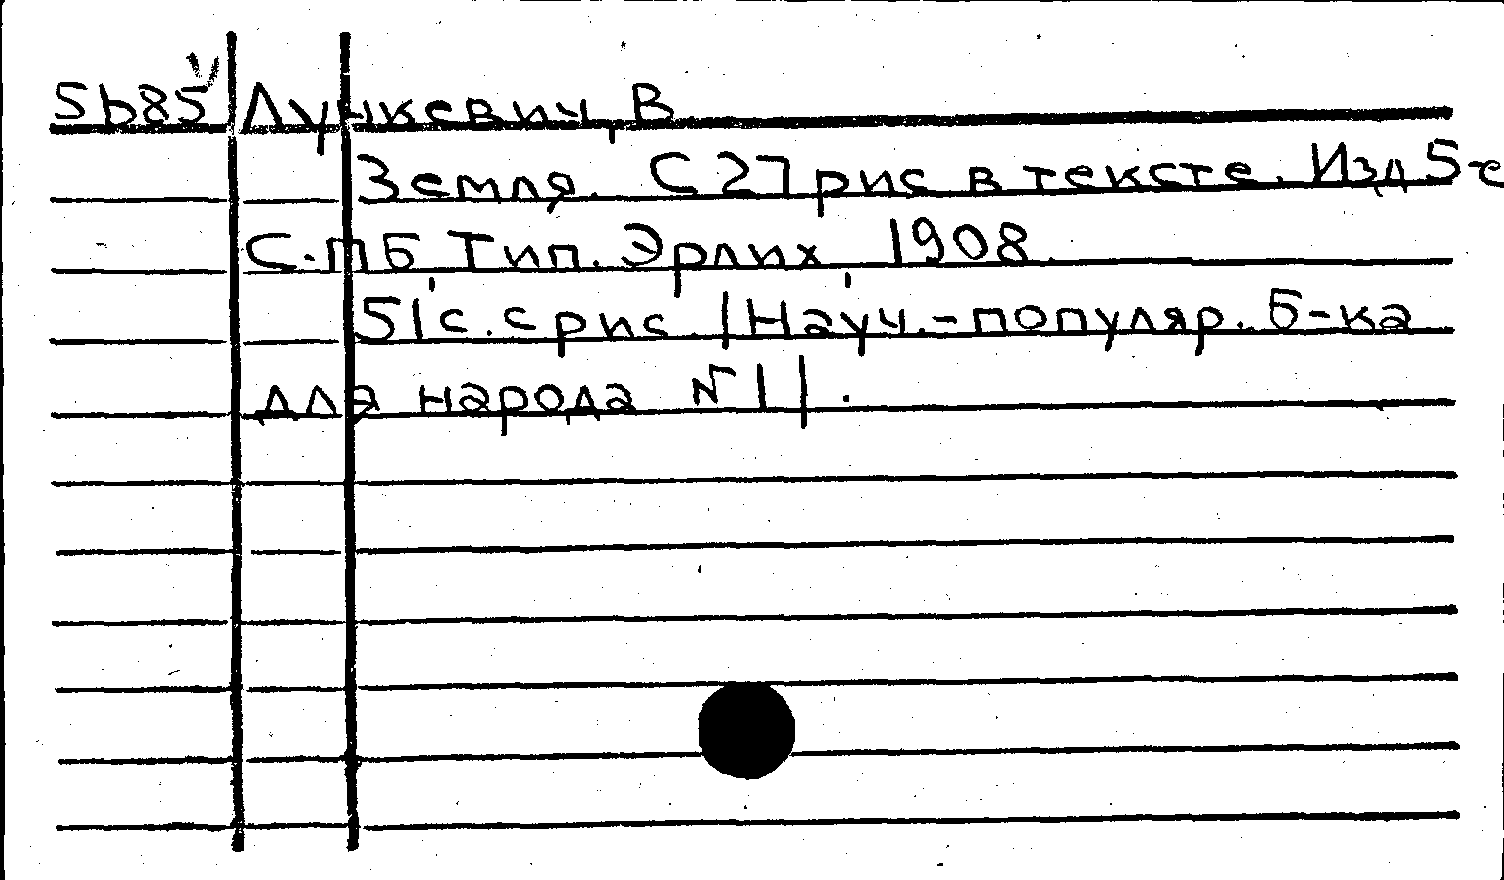 5b85 Лункевич, В
Земля. С 27 рис в тексте. Изд 5-е
С.ПБ, Тип. Эрлих, 1908.
51 с. с рис. |Науч.-популяр. Б-ка
для народа № 1|.